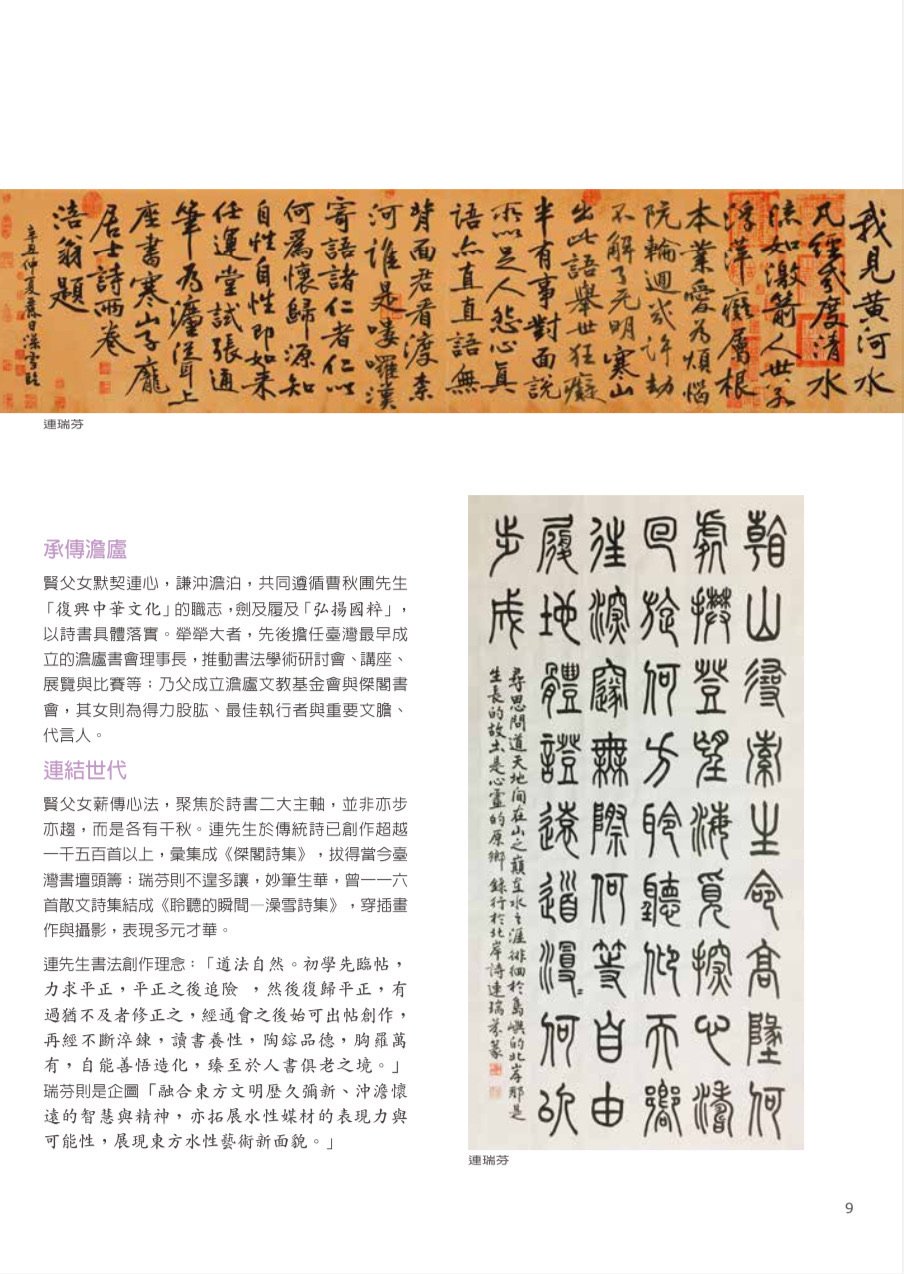 我見黃河水
凡經幾度清水
流如激箭人世若
浮萍癡屬根
本業愛為煩惱
阬輪迴幾許劫
不解了无明寒山
出此語舉世狂癡
半有事對面說
所以足人怨心真
語亦直直語無
背面君看渡奈
河誰是嘍囉漢
寄語諸仁者仁以
何為懷歸源知
自性自性即如來
任運堂試張通
筆為聳上
座書寒山子龐
居士詩兩卷
涪翁題
辛丑仲夏
連瑞芬
承傳澹廬
賢父女默契連心，謙沖澹泊，共同遵循曹秋圃先生
「復興中華文化」的職志，劍及履及「弘揚國粹」，
以詩書具體落實。犖犖大者，先後擔任臺灣最早成
立的澹廬書會理事長，推動書法學術研討會、講座、
展覽與比賽等；乃父成立澹廬文教基金會與傑閣書
會，其女則為得力股肱、最佳執行者與重要文膽、
代言人。
連結世代
賢父女薪傳心法，聚焦於詩書二大主軸，並非亦步
亦趨，而是各有千秋。連先生於傳統詩已創作超越
一千五百首以上，彙集成《傑閣詩集》，拔得當今臺
灣書壇頭籌；瑞芬則不遑多讓，妙筆生華，曾一一六
首散文詩集結成《聆聽的瞬間—澡雪詩集》，穿插畫
作與攝影，表現多元才華。
連先生書法創作理念：「道法自然。初學先臨帖，
力求平正，平正之後追險 ，然後復歸平正，有
過猶不及者修正之，經通會之後始可出帖創作，
再經不斷淬鍊，讀書養性，陶鎔品德，胸羅萬
有，自能善悟造化，臻至於人書俱老之境。」
瑞芬則是企圖「融合東方文明歷久彌新、沖澹懷
遠的智慧與精神，亦拓展水性媒材的表現力與
可能性，展現東方水性藝術新面貌。」
山尋索生命高何
處攀登望海覓探心濤
回旋何方聆聽仰天響
往深無際何等自由
履地體證遠漫何以
步成
尋思問道天地間在山之巔在水之涯徘徊於島嶼的北岸那是
生長的故土是心靈的原鄉 錄行於北岸詩連瑞芬篆
連瑞芬
9